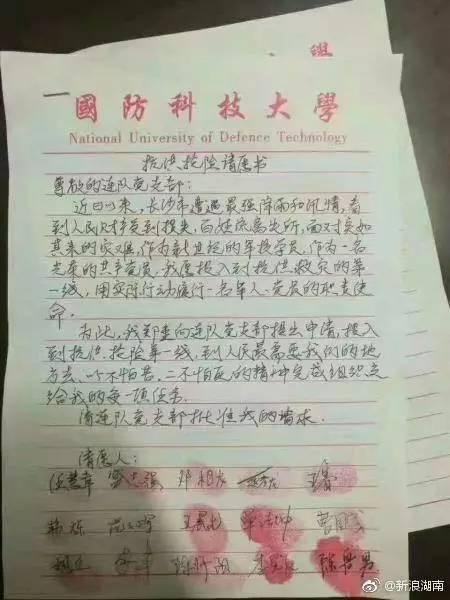 學
國防科技大學
National University of Defence Technology
抗洪抢险请愿书
尊敬的连队党支部:
近日以来,长沙市遭遇最强降雨和汛情,看
到人民财产受到损失,百姓流离失所,面对突如
其来的灾难,作为新世纪的军校学员,作为一名
光荣的共产党员,我愿投入到抗洪救灾的第
一线,用实际行动履行一名军人、党员的职责使
命。
为此,我郑重向连队党支部提出申请,投入
到抗洪抢险第一线,到人民最需要我们的地
方去,以一不怕苦、二不怕死的精神完成组织交
给我的每一项任务。
请连队党支部批准我的请求。
请愿人:
邓相龙
@新浪湖南